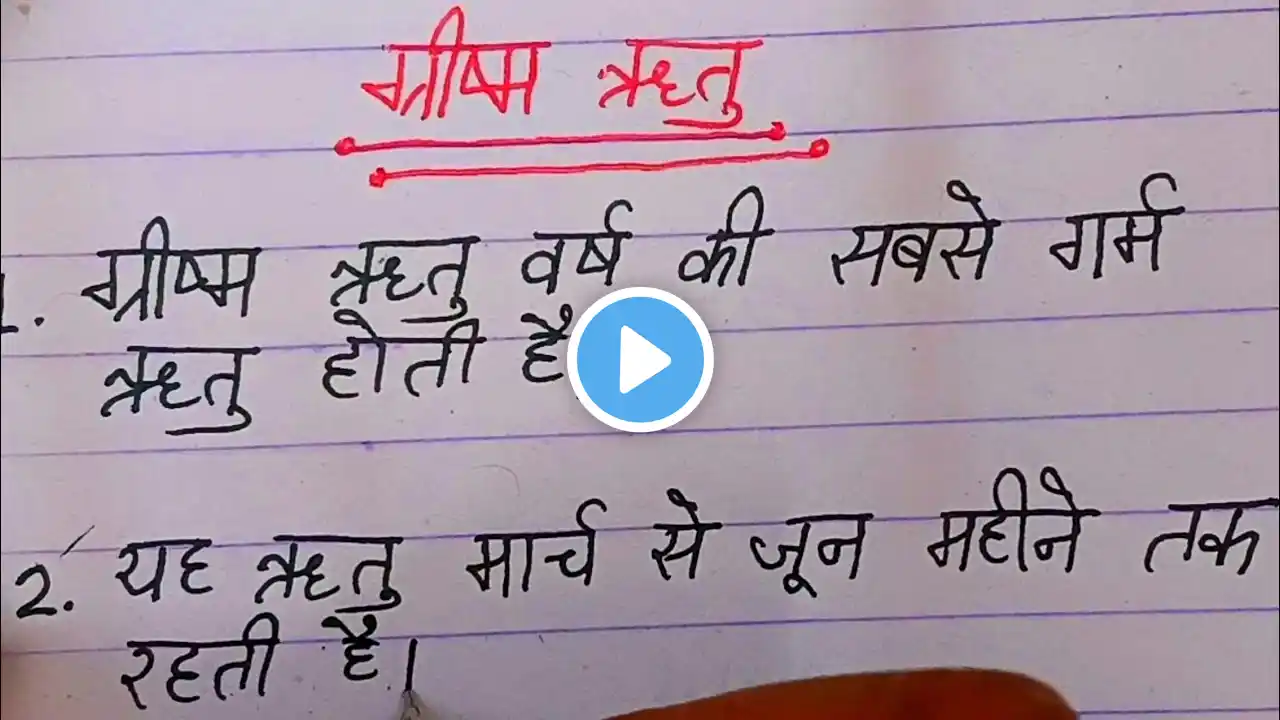 ग्रीष्म ऋतु
1. ग्रीष्म ऋतु वर्ष की सबसे गर्म
ऋतु होती है
2. यह ऋतु मार्च से जून महीने तक
रहती है।